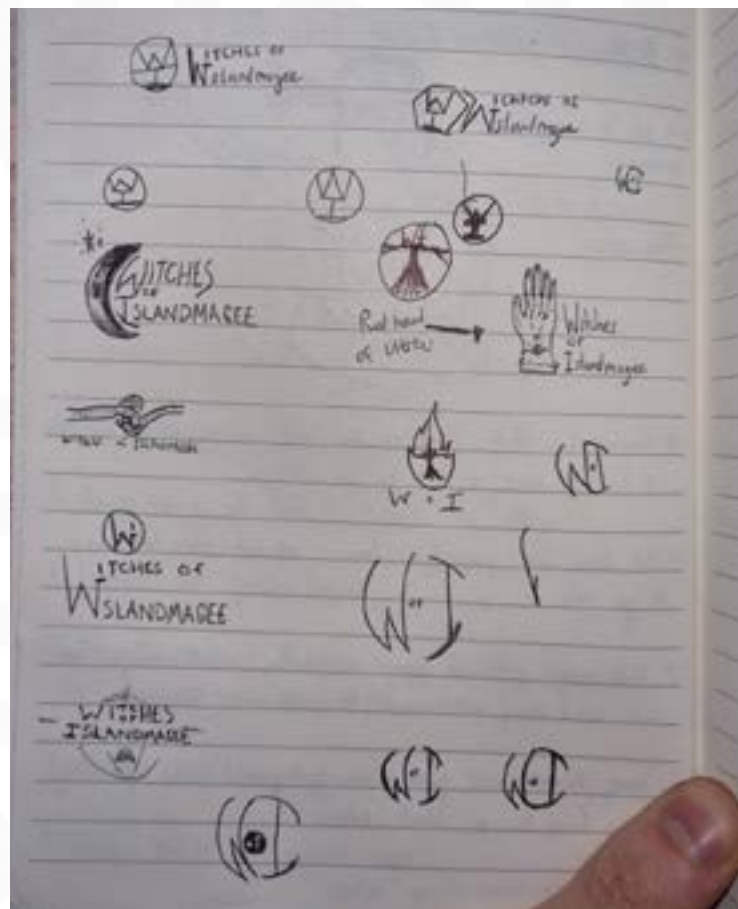 WITCHES OF
Islandmagee
WITCHES OF
Islandmagee
W
W
W
WI
WITCHES
OF
ISLANDMAGEE
Red hand
of Ulster
Witches
of
Islandmagee
W • I
W • I
W
WITCHES OF
ISLANDMAGEE
W OF I
WITCHES
OF
ISLANDMAGEE
W • I
W • I
W OF I